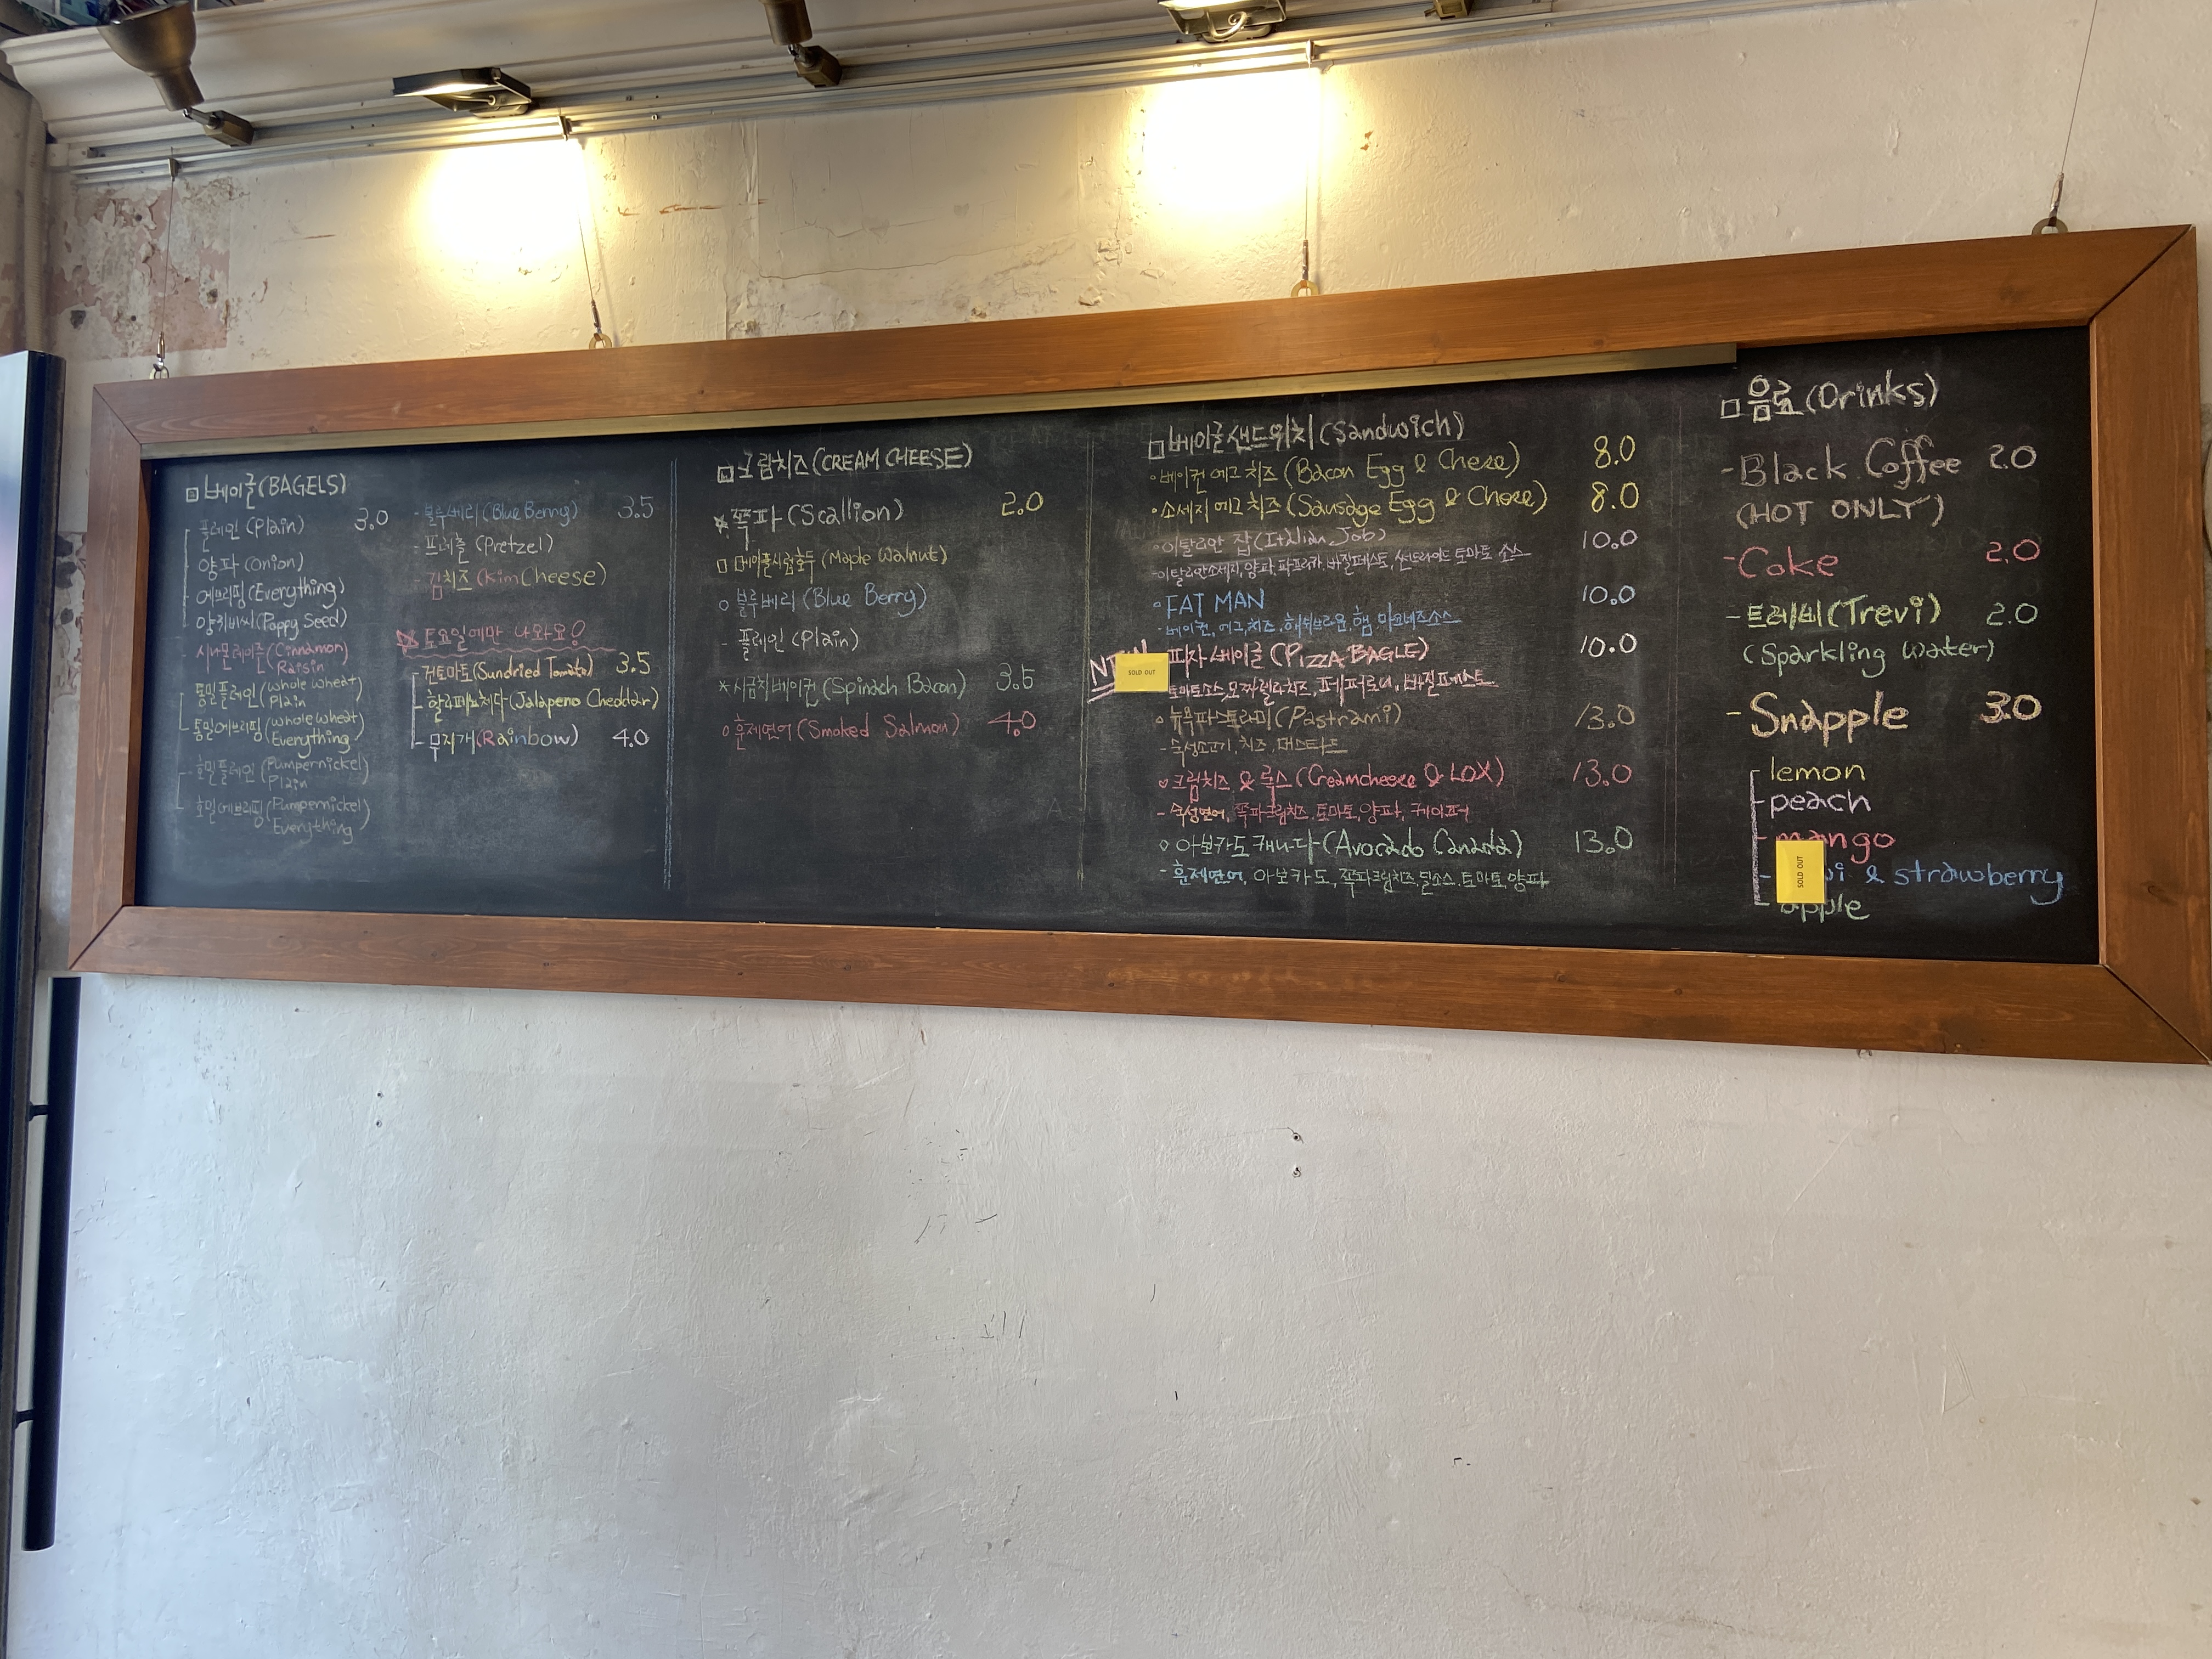 베이글(BAGELS)
플레인(Plain) 3.0
양파(onion)
에브리띵(Everything)
양귀비씨(Poppy Seed)
- 시나몬레이즌(Cinnamon Raisin)
통밀플레인(Whole Wheat Plain)
통밀에브리띵(Whole Wheat Everything)
호밀플레인(Pumpernickel Plain)
호밀에브리띵(Pumpernickel Everything)
- 블루베리(Blue Berry) 3.5
- 프레즐(Pretzel)
- 김치즈(Kim Cheese)
토요일에만 나와요!
건토마토(Sundried Tomato) 3.5
할라피뇨체다(Jalapeno Cheddar)
무지개(Rainbow) 4.0
크림치즈(CREAM CHEESE)
쪽파(Scallion) 2.0
메이플시럽호두(Maple Walnut)
블루베리(Blue Berry)
- 플레인(Plain)
시금치베이컨(Spinach Bacon) 3.5
훈제연어(Smoked Salmon) 4.0
베이글샌드위치(Sandwich)
베이컨 에그 치즈(Bacon Egg & Chese) 8.0
소세지 에그 치즈(Sausage Egg & Chese) 8.0
이탈리안 잡(Italian Job) 10.0
- 이탈리안소세지, 양파, 파프리카, 바질페스토, 썬드라이드 토마토 소스
FAT MAN 10.0
- 베이컨, 에그, 치즈, 해쉬브라운, 햄, 마요네즈소스
피자베이글(PIZZA BAGLE) 10.0
SOLD OUT
토마토소스, 모짜렐라치즈, 페퍼로니, 바질페스토
뉴욕파스트라미(Pastrami) 13.0
- 숙성소고기, 치즈, 머스타드
크림치즈 & 룩스(Creamcheese & LOX) 13.0
- 숙성연어, 쪽파크림치즈, 토마토, 양파, 케이퍼
아보카도 캐나다(Avocado Canada) 13.0
- 훈제연어, 아보카도, 쪽파크림치즈, 딜소스, 토마토, 양파
음료(Drinks)
- Black Coffee 2.0
(HOT ONLY)
- Coke 2.0
- 트레비(Trevi) 2.0
(Sparkling Water)
- Snapple 3.0
lemon
peach
mango
SOLD OUT
& strawberry
apple